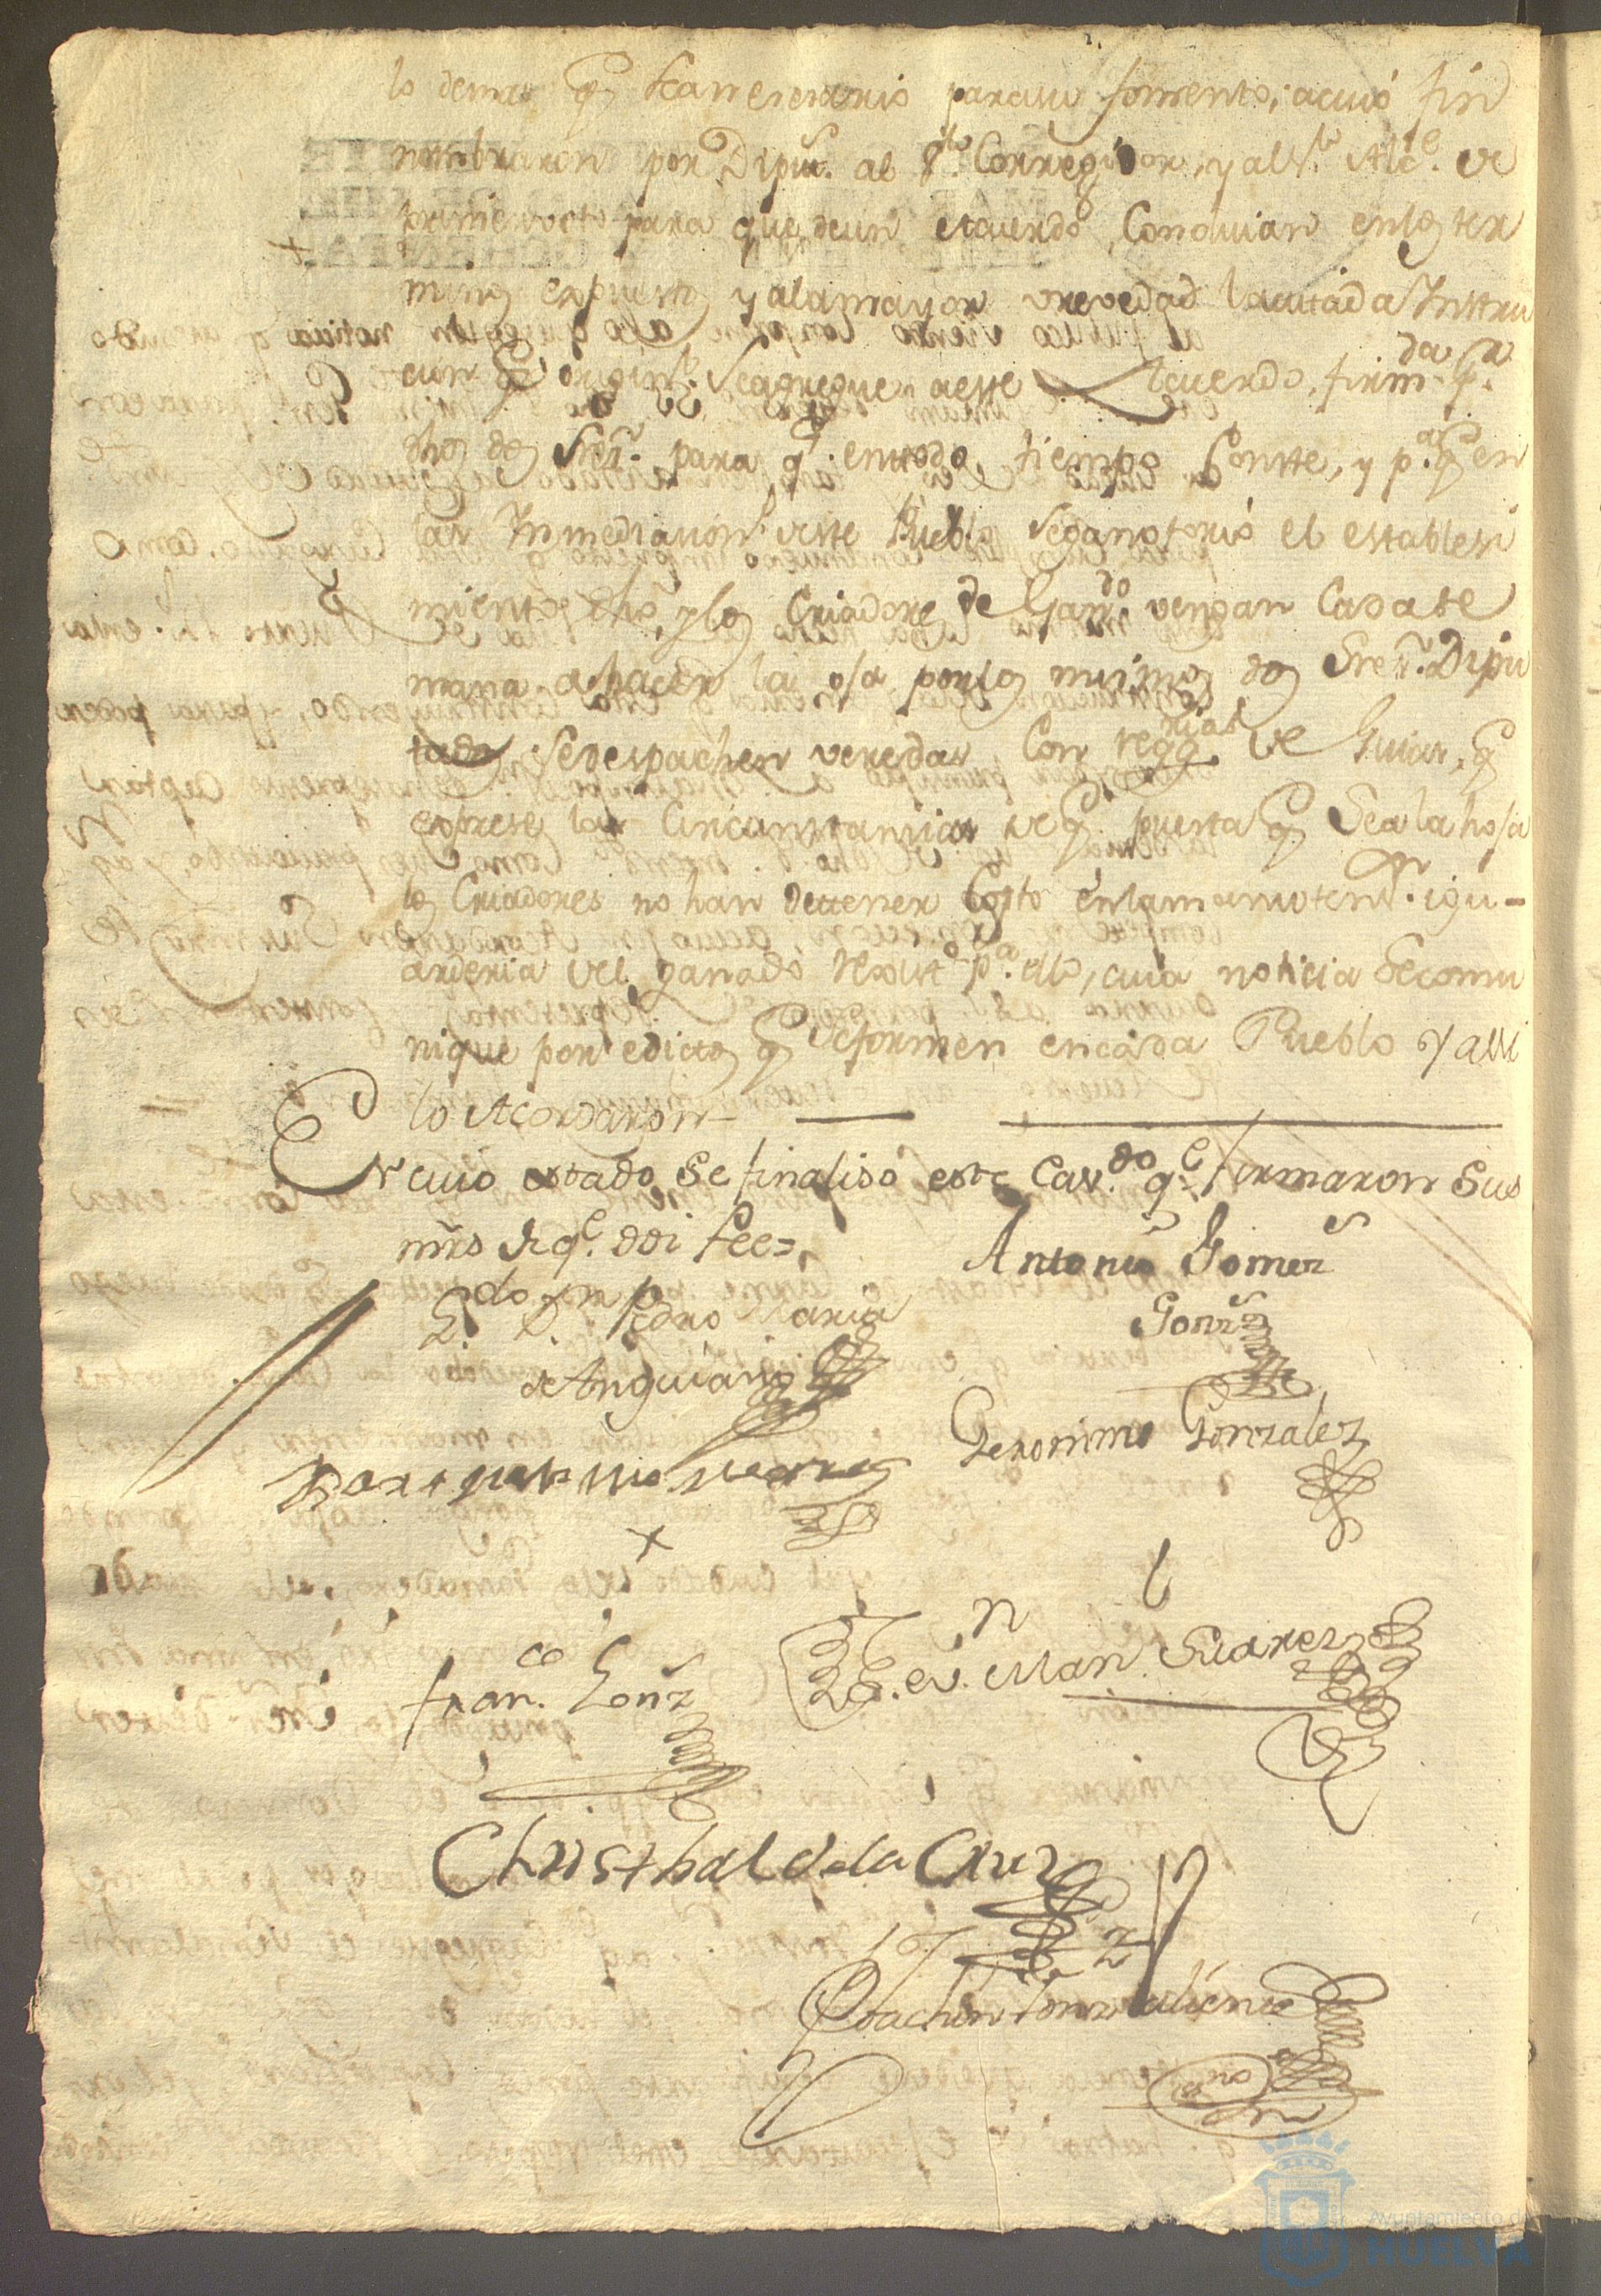 lo demas q̃ sea nesesario para su fomento; a cuio fin
nombraron por Diput. al Sr. Corregidor, y al Sr. Alce. de
primer voto para que de un acuerdo, Concluian en los ter
minos expuestos y ala mayor vrevedad la citada Instru
cion q̃ origin.l Se agregue a este Acuerdo, firm.da p.r
dhos dos Sres. para q̃ en todo tiempo Conste, y p.a q̃ en
las Inmediacion.s de este Pueblo Se ga notorio el establesi
miento dho, y los Criadores de Gan.do vengan Cada se
mana a hacer la osa por los mismos dos Sres. Dipu
tados Se despachen veredas, Con regg.rias de Guias, q̃
exprese las Circunstancias de q̃ puesta q̃ Sea la hosa
los Criadores no han de tener Costo en la manutens.on i gu-
arderia del ganado Rexist.o p.a ello, cuia noticia Se comu
nique por edictos q̃ Se formen en cada Pueblo Y assi
lo Acordaron
En cuio estado Se finalisó este Cav.do q.e firmaron Sus
mrds de q.e doi fee=
L.do D.n Pedro Maria
de Anguiano
Antonio Gomez
Gonz
Geronimo Gonzalez
Fran.co Gonz
Man.l Suarez
Christhobal de la Cruz
Joachin
ss.no
Ayuntamiento de
HUELVA